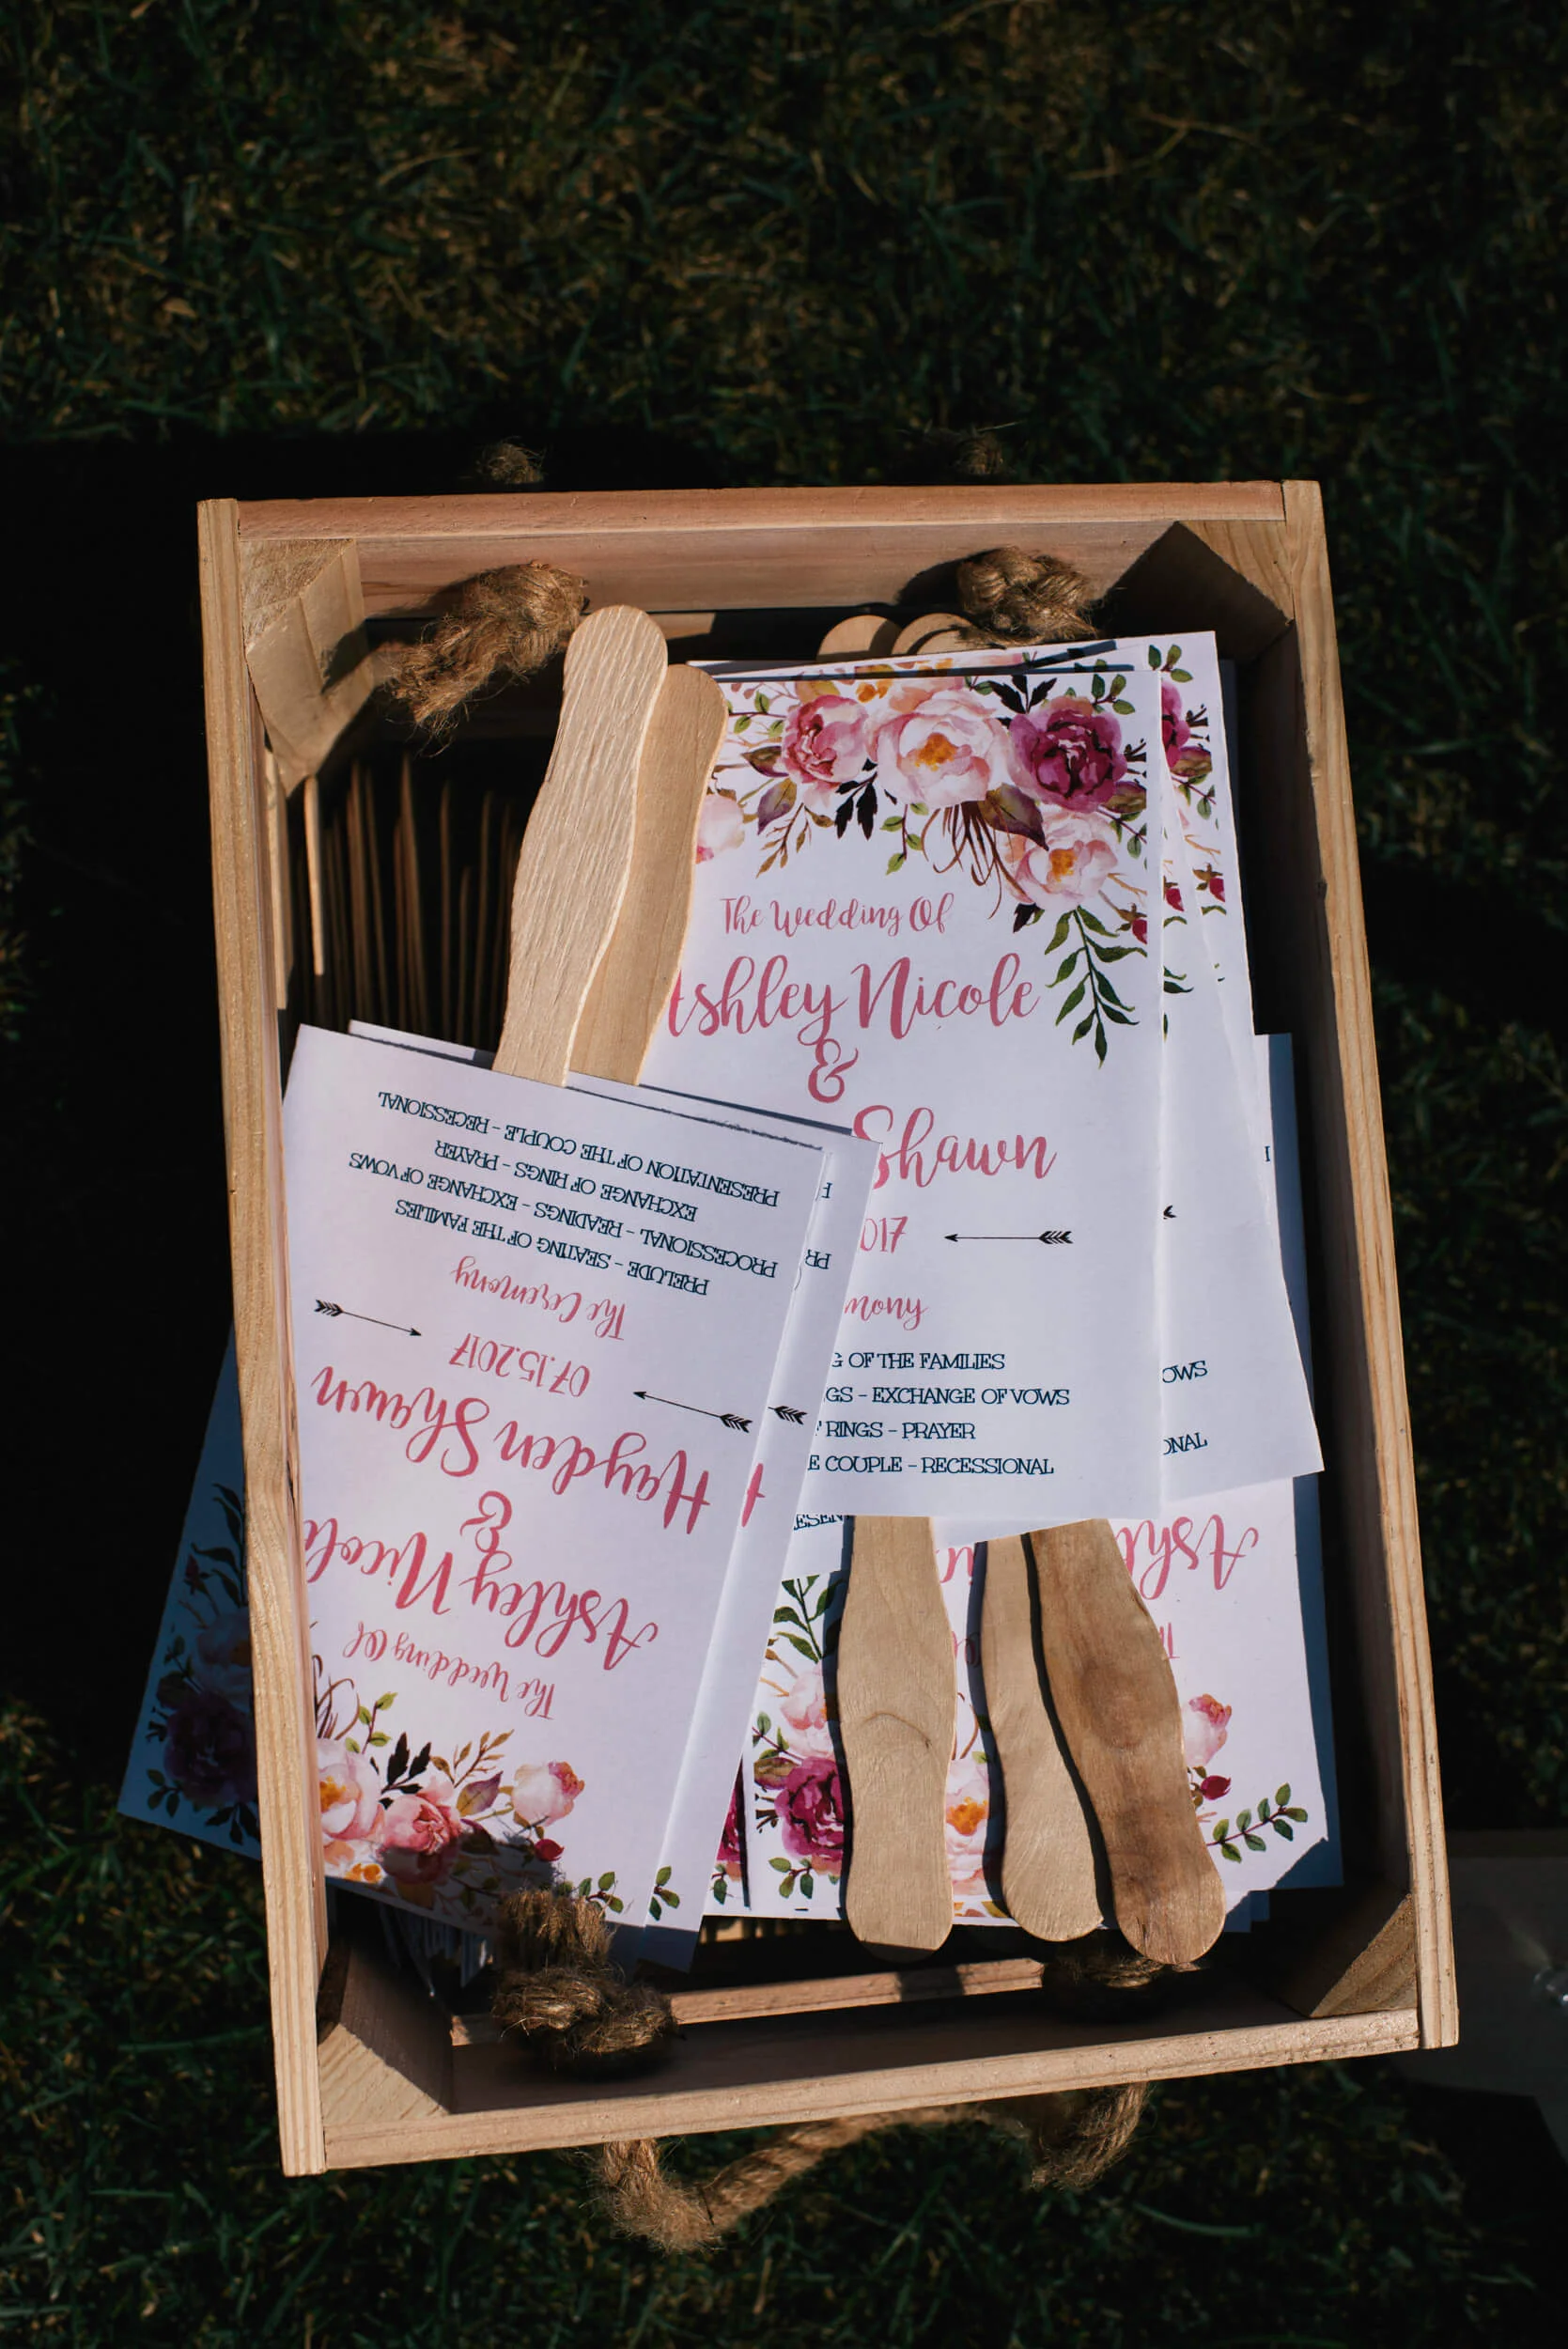 The Wedding Of
Ashley Nicole
&
Shawn
017
mony
G OF THE FAMILIES
GS - EXCHANGE OF VOWS
RINGS - PRAYER
E COUPLE - RECESSIONAL
The Wedding Of
Ashley Nicole
&
Hayden Shawn
07.15.2017
The Ceremony
PRELUDE - SEATING OF THE FAMILIES
PROCESSIONAL - READINGS - EXCHANGE OF VOWS
EXCHANGE OF RINGS - PRAYER
PRESENTATION OF THE COUPLE - RECESSIONAL
PR
P
OWS
ONAL
ESEN
Ashl